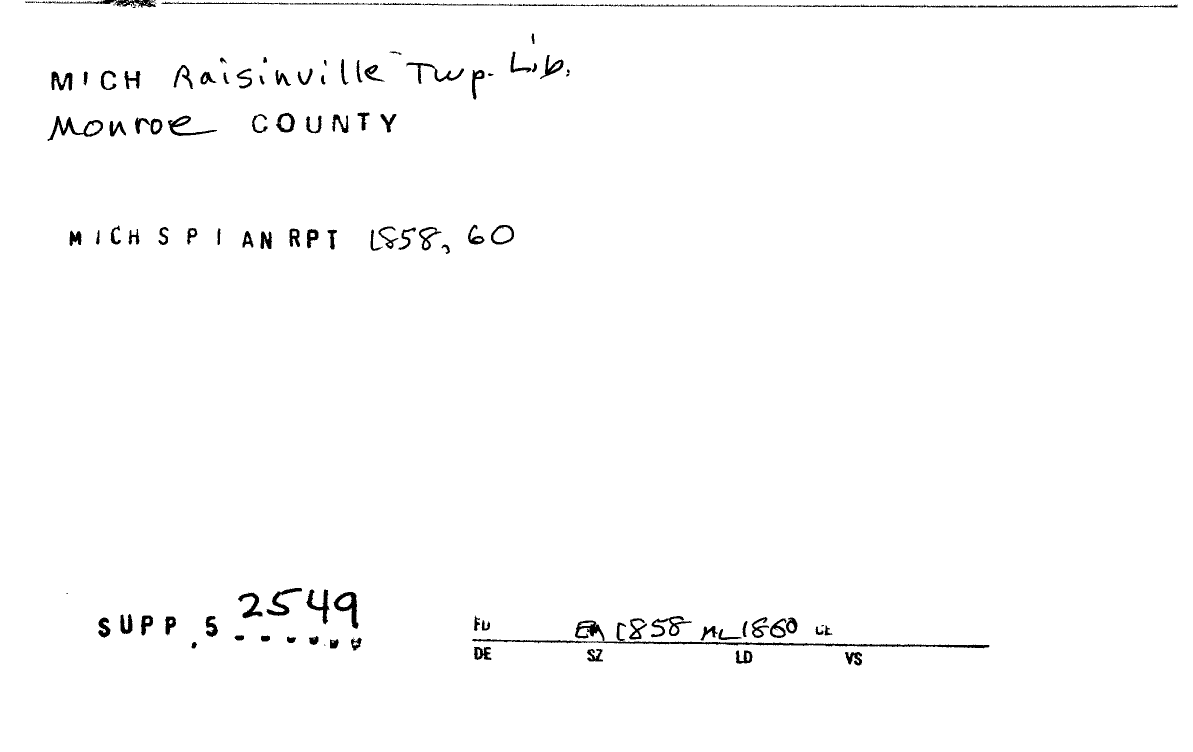 MICH Raisinville Twp. Lib.
Monroe COUNTY
MICH S P I AN RPT 1858, 60
SUPP. 5 2549
FD EM 1858 ML 1860 LE
DE SZ LD VS